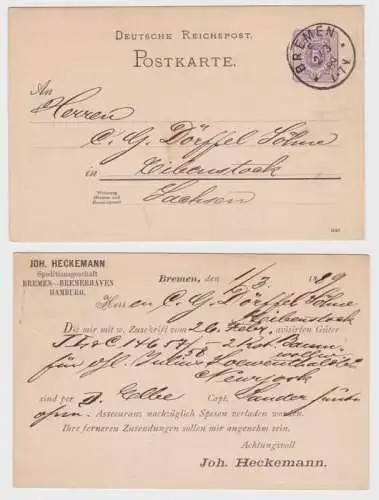 DEUTSCHE REICHSPOST.
POSTKARTE.
BREMEN
An
Herren
C. G. Dörffel Söhne
in Eibenstock
Wohnung
Sachsen
JOH. HECKEMANN
Speditionsgeschäft
BREMEN—BREMERHAVEN
HAMBURG.
Bremen, den 1/3 1889
Herren C. G. Dörffel Söhne
Eibenstock
Die mir mit w. Zuschrift vom 26. Febr. avisirten Güter
für Julius Loewenthal
Newyork
sind per D. Elbe Capt. Sander
Assecuranz nachzüglich Spesen verladen worden.
Ihre ferneren Zusendungen sollen mir angenehm sein.
Achtungsvoll
Joh. Heckemann.